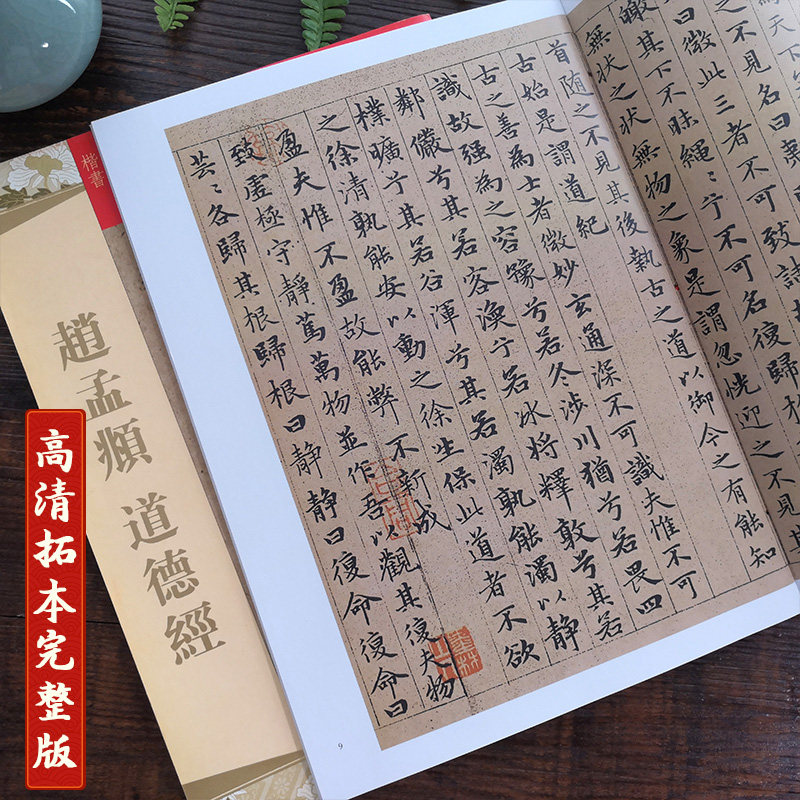 為天下
之不見名曰夷
曰微此三者不可致詰
皦其下不昧繩〻兮不可名復歸
無狀之狀無物之象是謂忽恍迎之不見其
首随之不見其後執古之道以御今之有能知
古始是謂道紀
古之善為士者微妙玄通深不可識夫惟不可
識故强為之容豫兮若冬涉川猶兮若畏四
鄰儼兮其若容渙兮若冰將釋敦兮其若
樸曠兮其若谷渾兮其若濁孰能濁以静
之徐清孰能安以動之徐生保此道者不欲
盈夫惟不盈故能弊不新成
致虛極守静篤萬物並作吾以觀其復夫物
芸〻各歸其根歸根曰静静曰復命復命曰
9
楷書
趙孟頫 道德經
高清拓本完整版